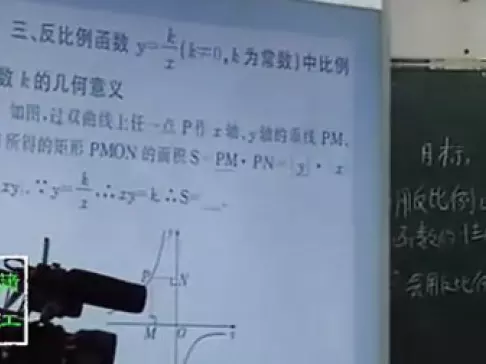 三、反比例函数 y=k/x (k≠0,k为常数)中比例
数k的几何意义
如图,过双曲线上任一点P作x轴、y轴的垂线PM、
所得的矩形PMON的面积S=PM·PN=|y|· x
xy.∵y=k/x ∴xy=k ∴S=__.
P N
M O x
目标:
用反比例
函数的
会用反比例
江